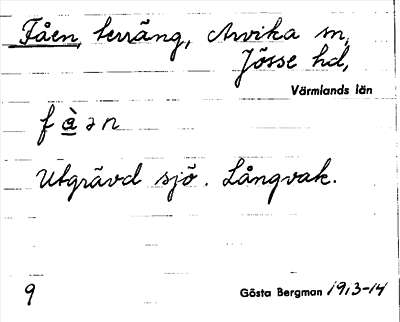 Fåen, terräng, Arvika sn,
Jösse hd,
Värmlands län
f à ə n
Utgrävd sjö. Långvak.
9
Gösta Bergman 1913-14